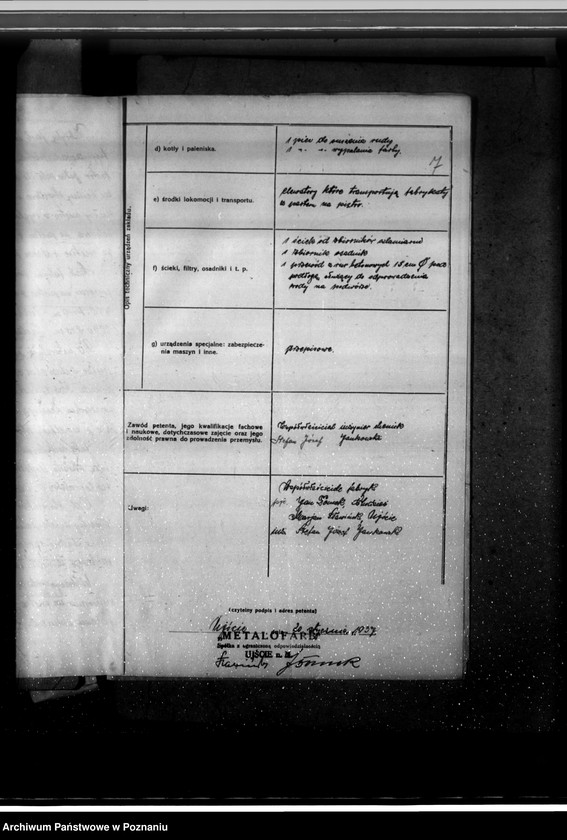 7
Opis techniczny urządzeń zakładu.
d) kotły i paleniska.
1 piec do suszenia rudy
1 " " wypalania farby.
e) środki lokomocji i transportu.
elewatory które transportują fabrykaty
na piętro.
f) ścieki, filtry, osadniki i t. p.
1 ściek od zbiorników
1 zbiornik osadnik
1 przewód z rur betonowych 15 cm Ø pod
podłogą służący do odprowadzenia
wody na
g) urządzenia specjalne: zabezpiecze-
nia maszyn i inne.
przepisowe.
Zawód petenta, jego kwalifikacje fachowe
i naukowe, dotychczasowe zajęcie oraz jego
zdolność prawna do prowadzenia przemysłu.
Współwłaściciel inżynier chemik
Stefan Józef Jankowski
Uwagi:
Współwłaściciele fabryki
Jan
Marjan Ujście
Stefan Józef Jankowski
(czytelny podpis i adres petenta)
Ujście 20 stycznia 1937
„METALOFARB"
Spółka z ograniczoną odpowiedzialnością
UJŚCIE n. N.